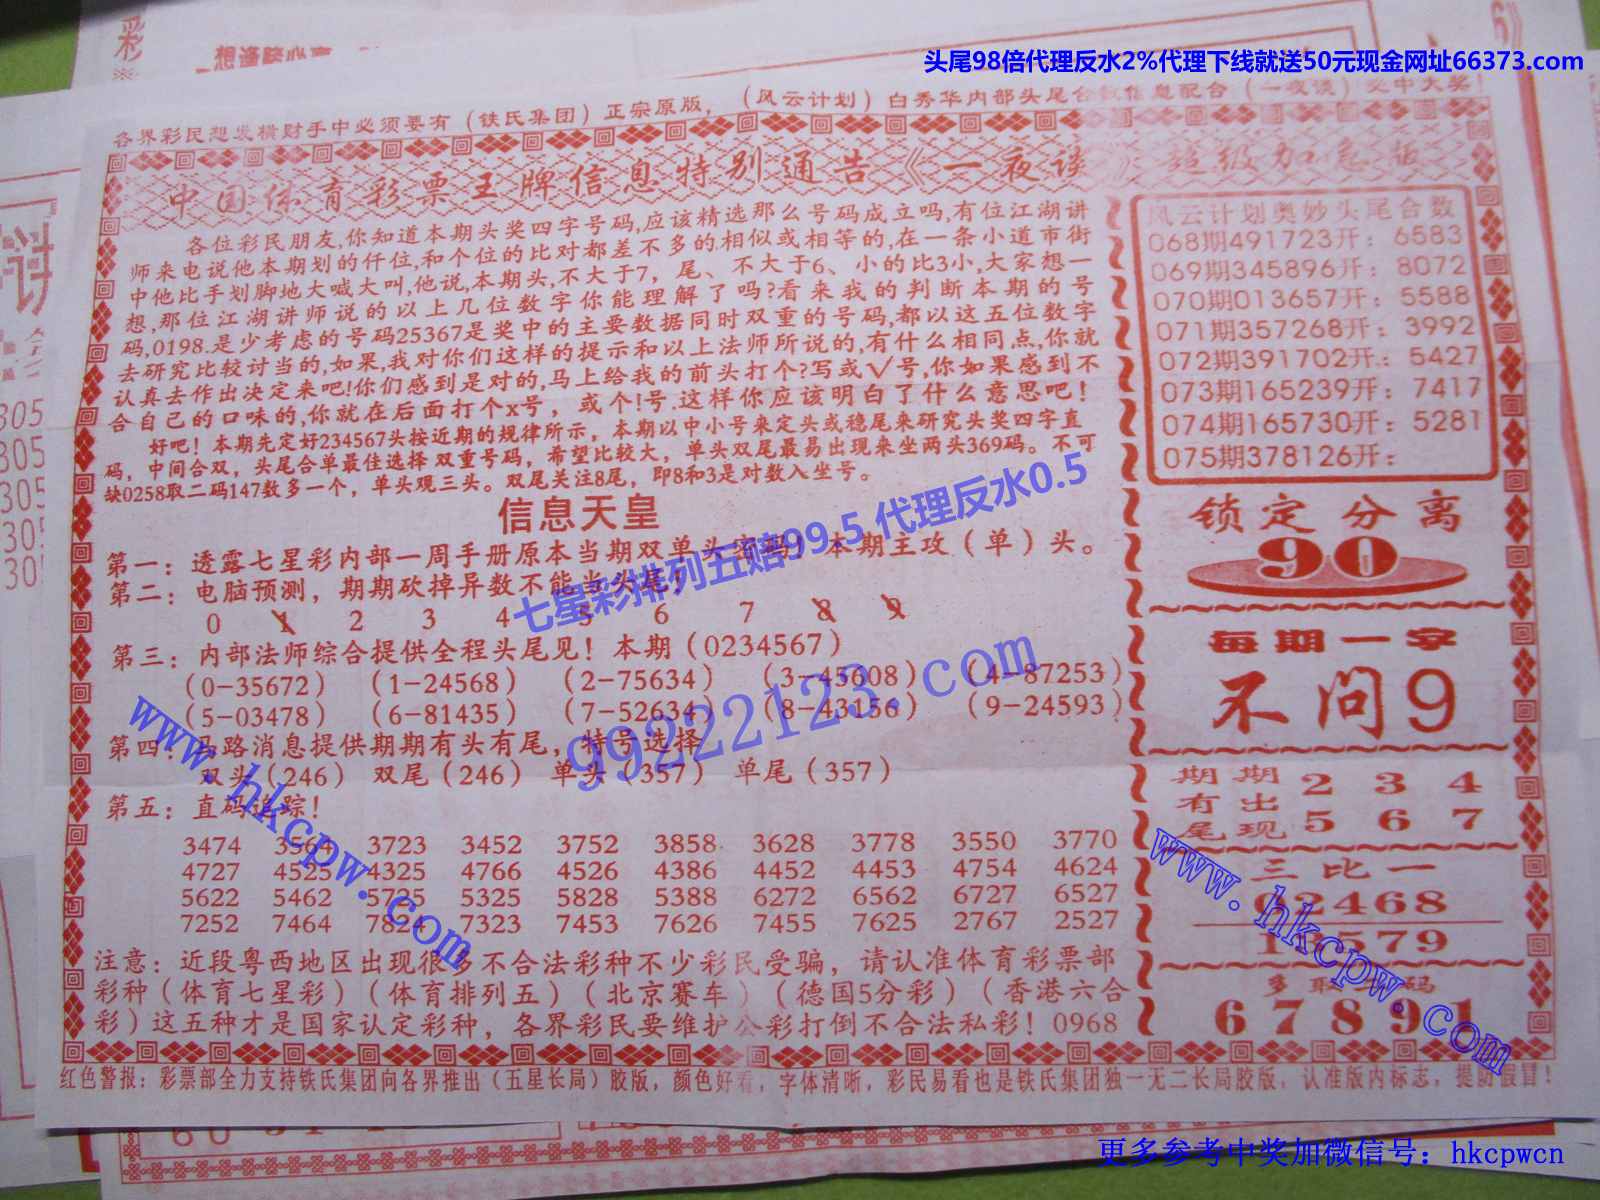 头尾98倍代理反水2%代理下线就送50元现金网址66373.com
各界彩民想发横财手中必须要有（铁氏集团）正宗原版，（风云计划）白秀华内部头尾合数信息配合（一夜谈）必中大奖！
中国体育彩票王牌信息特别通告《一夜谈》超级加急版
各位彩民朋友,你知道本期头奖四字号码,应该精选那么号码成立吗,有位江湖讲
师来电说他本期划的仟位,和个位的比对都差不多的,相似或相等的,在一条小道市街
中他比手划脚地大喊大叫,他说,本期头,不大于7，尾、不大于6、小的比3小,大家想一
想,那位江湖讲师说的以上几位数字你能理解了吗?看来我的判断本期的号
码,0198.是少考虑的号码25367是奖中的主要数据同时双重的号码,都以这五位数字
去研究比较讨当的,如果,我对你们这样的提示和以上法师所说的,有什么相同点,你就
认真去作出决定来吧!你们感到是对的,马上给我的前头打个?写或√号,你如果感到不
合自己的口味的,你就在后面打个x号，或个!号.这样你应该明白了什么意思吧！
好吧！本期先定好234567头按近期的规律所示，本期以中小号来定头或稳尾来研究头奖四字直
码，中间合双，头尾合单最佳选择 双重号码，希望比较大，单头双尾最易出现来坐两头369码。不可
缺0258取二码147数多一个，单头观三头。双尾关注8尾，即8和3是对数入坐号。
信息天皇
第一：透露七星彩内部一周手册原本当期双单头密码！本期主攻（单）头。
第二：电脑预测，期期砍掉异数不能当头尾！
0 1 2 3 4 5 6 7 8 9
第三：内部法师综合提供全程头尾见！本期（0234567）
（0-35672） （1-24568） （2-75634） （3-45608） （4-87253）
（5-03478） （6-81435） （7-52634） （8-43156） （9-24593）
第四：马路消息提供期期有头有尾，特号选择
双头（246） 双尾（246） 单头（357） 单尾（357）
第五：直码追踪！
3474 3564 3723 3452 3752 3858 3628 3778 3550 3770
4727 4525 4325 4766 4526 4386 4452 4453 4754 4624
5622 5462 5725 5325 5828 5388 6272 6562 6727 6527
7252 7464 7824 7323 7453 7626 7455 7625 2767 2527
注意：近段粤西地区出现很多不合法彩种不少彩民受骗，请认准体育彩票部
彩种（体育七星彩）（体育排列五）（北京赛车）（德国5分彩）（香港六合
彩）这五种才是国家认定彩种，各界彩民要维护公彩打倒不合法私彩！0968
风云计划奥妙头尾合数
068期491723开：6583
069期345896开：8072
070期013657开：5588
071期357268开：3992
072期391702开：5427
073期165239开：7417
074期165730开：5281
075期378126开：
锁定分离
90
每期一字
不问9
期期 2 3 4
有出
尾现 5 6 7
三比一
02468
13579
多取 码
67891
红色警报：彩票部全力支持铁氏集团向各界推出（五星长局）胶版，颜色好看，字体清晰，彩民易看也是铁氏集团独一无二长局胶版，认准版内标志，提防假冒！
七星彩排列五赔99.5 代理反水0.5
99222123.com
www.hkcpw.com
www.hkcpw.com
更多参考中奖加微信号：hkcpwcn